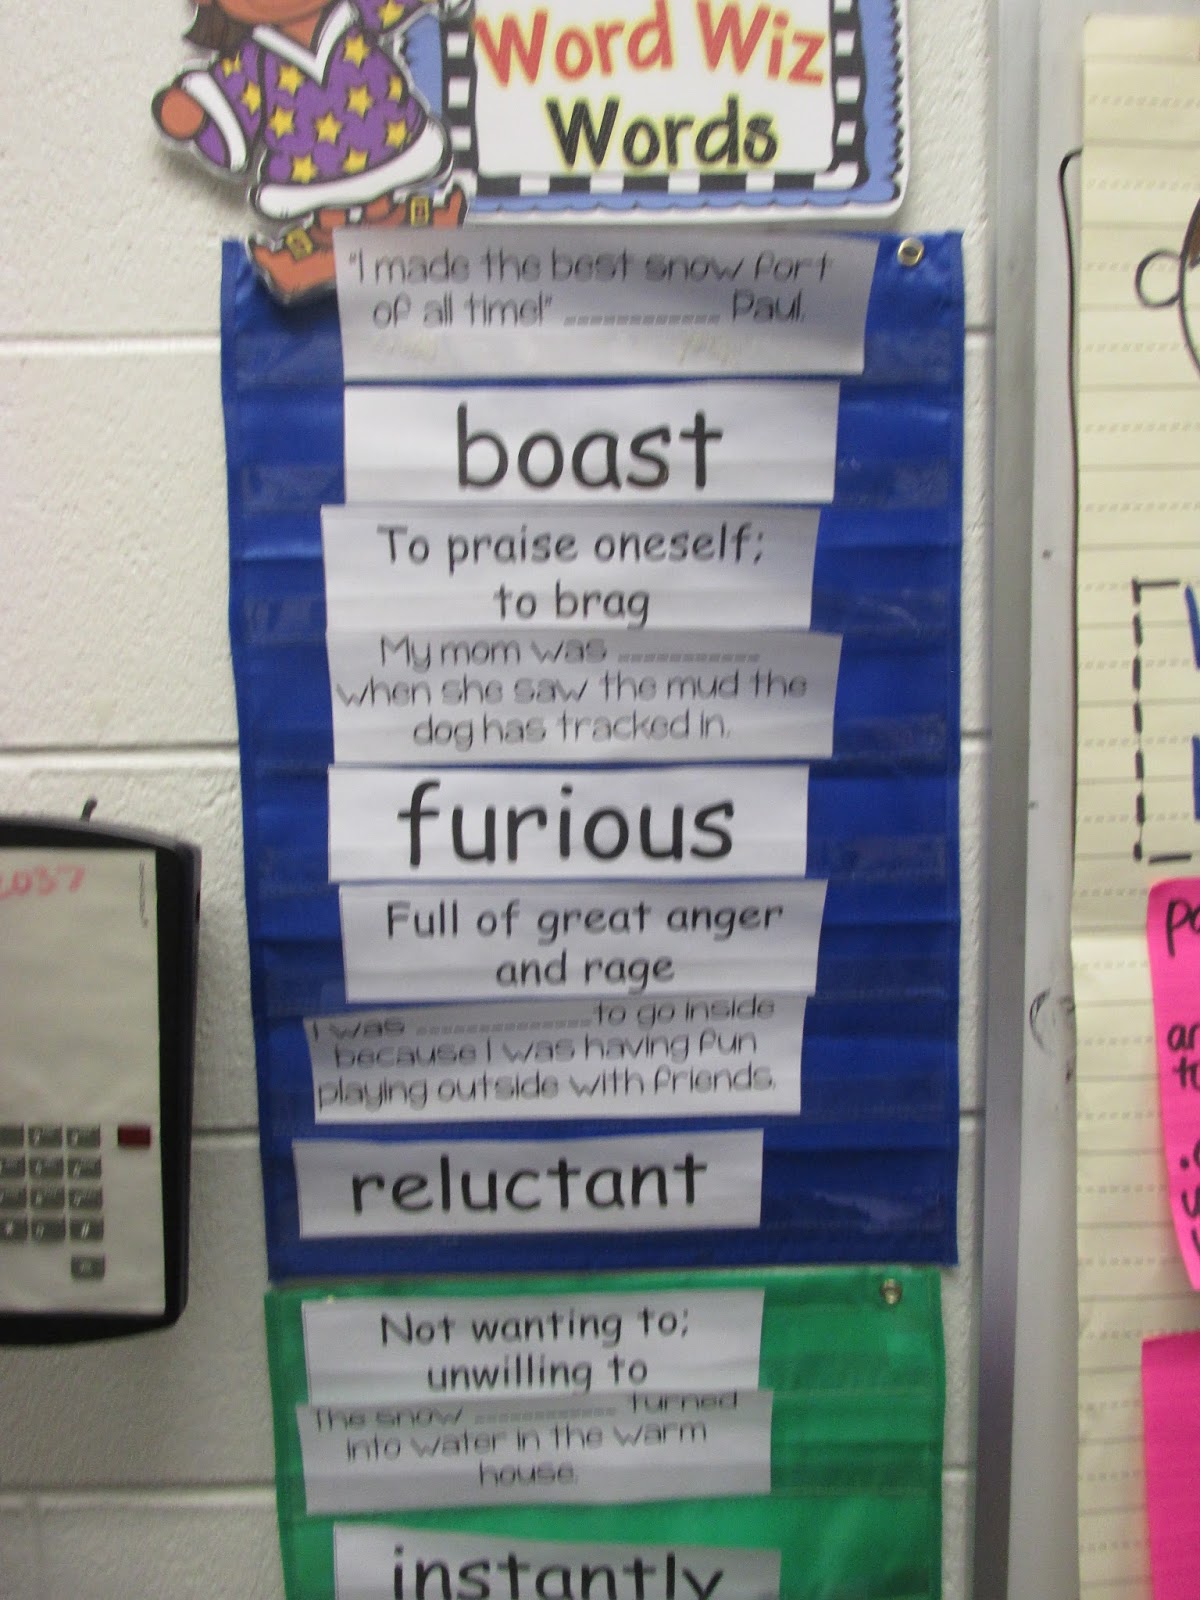 Word Wiz
Words
"I made the best snow fort
of all time!" ____________ Paul.
boast
To praise oneself;
to brag
My mom was ___________
when she saw the mud the
dog has tracked in.
furious
Full of great anger
and rage
I was ______________to go inside
because I was having fun
playing outside with friends.
reluctant
Not wanting to;
unwilling to
The snow ____________ turned
into water in the warm
house.
instantly
2037